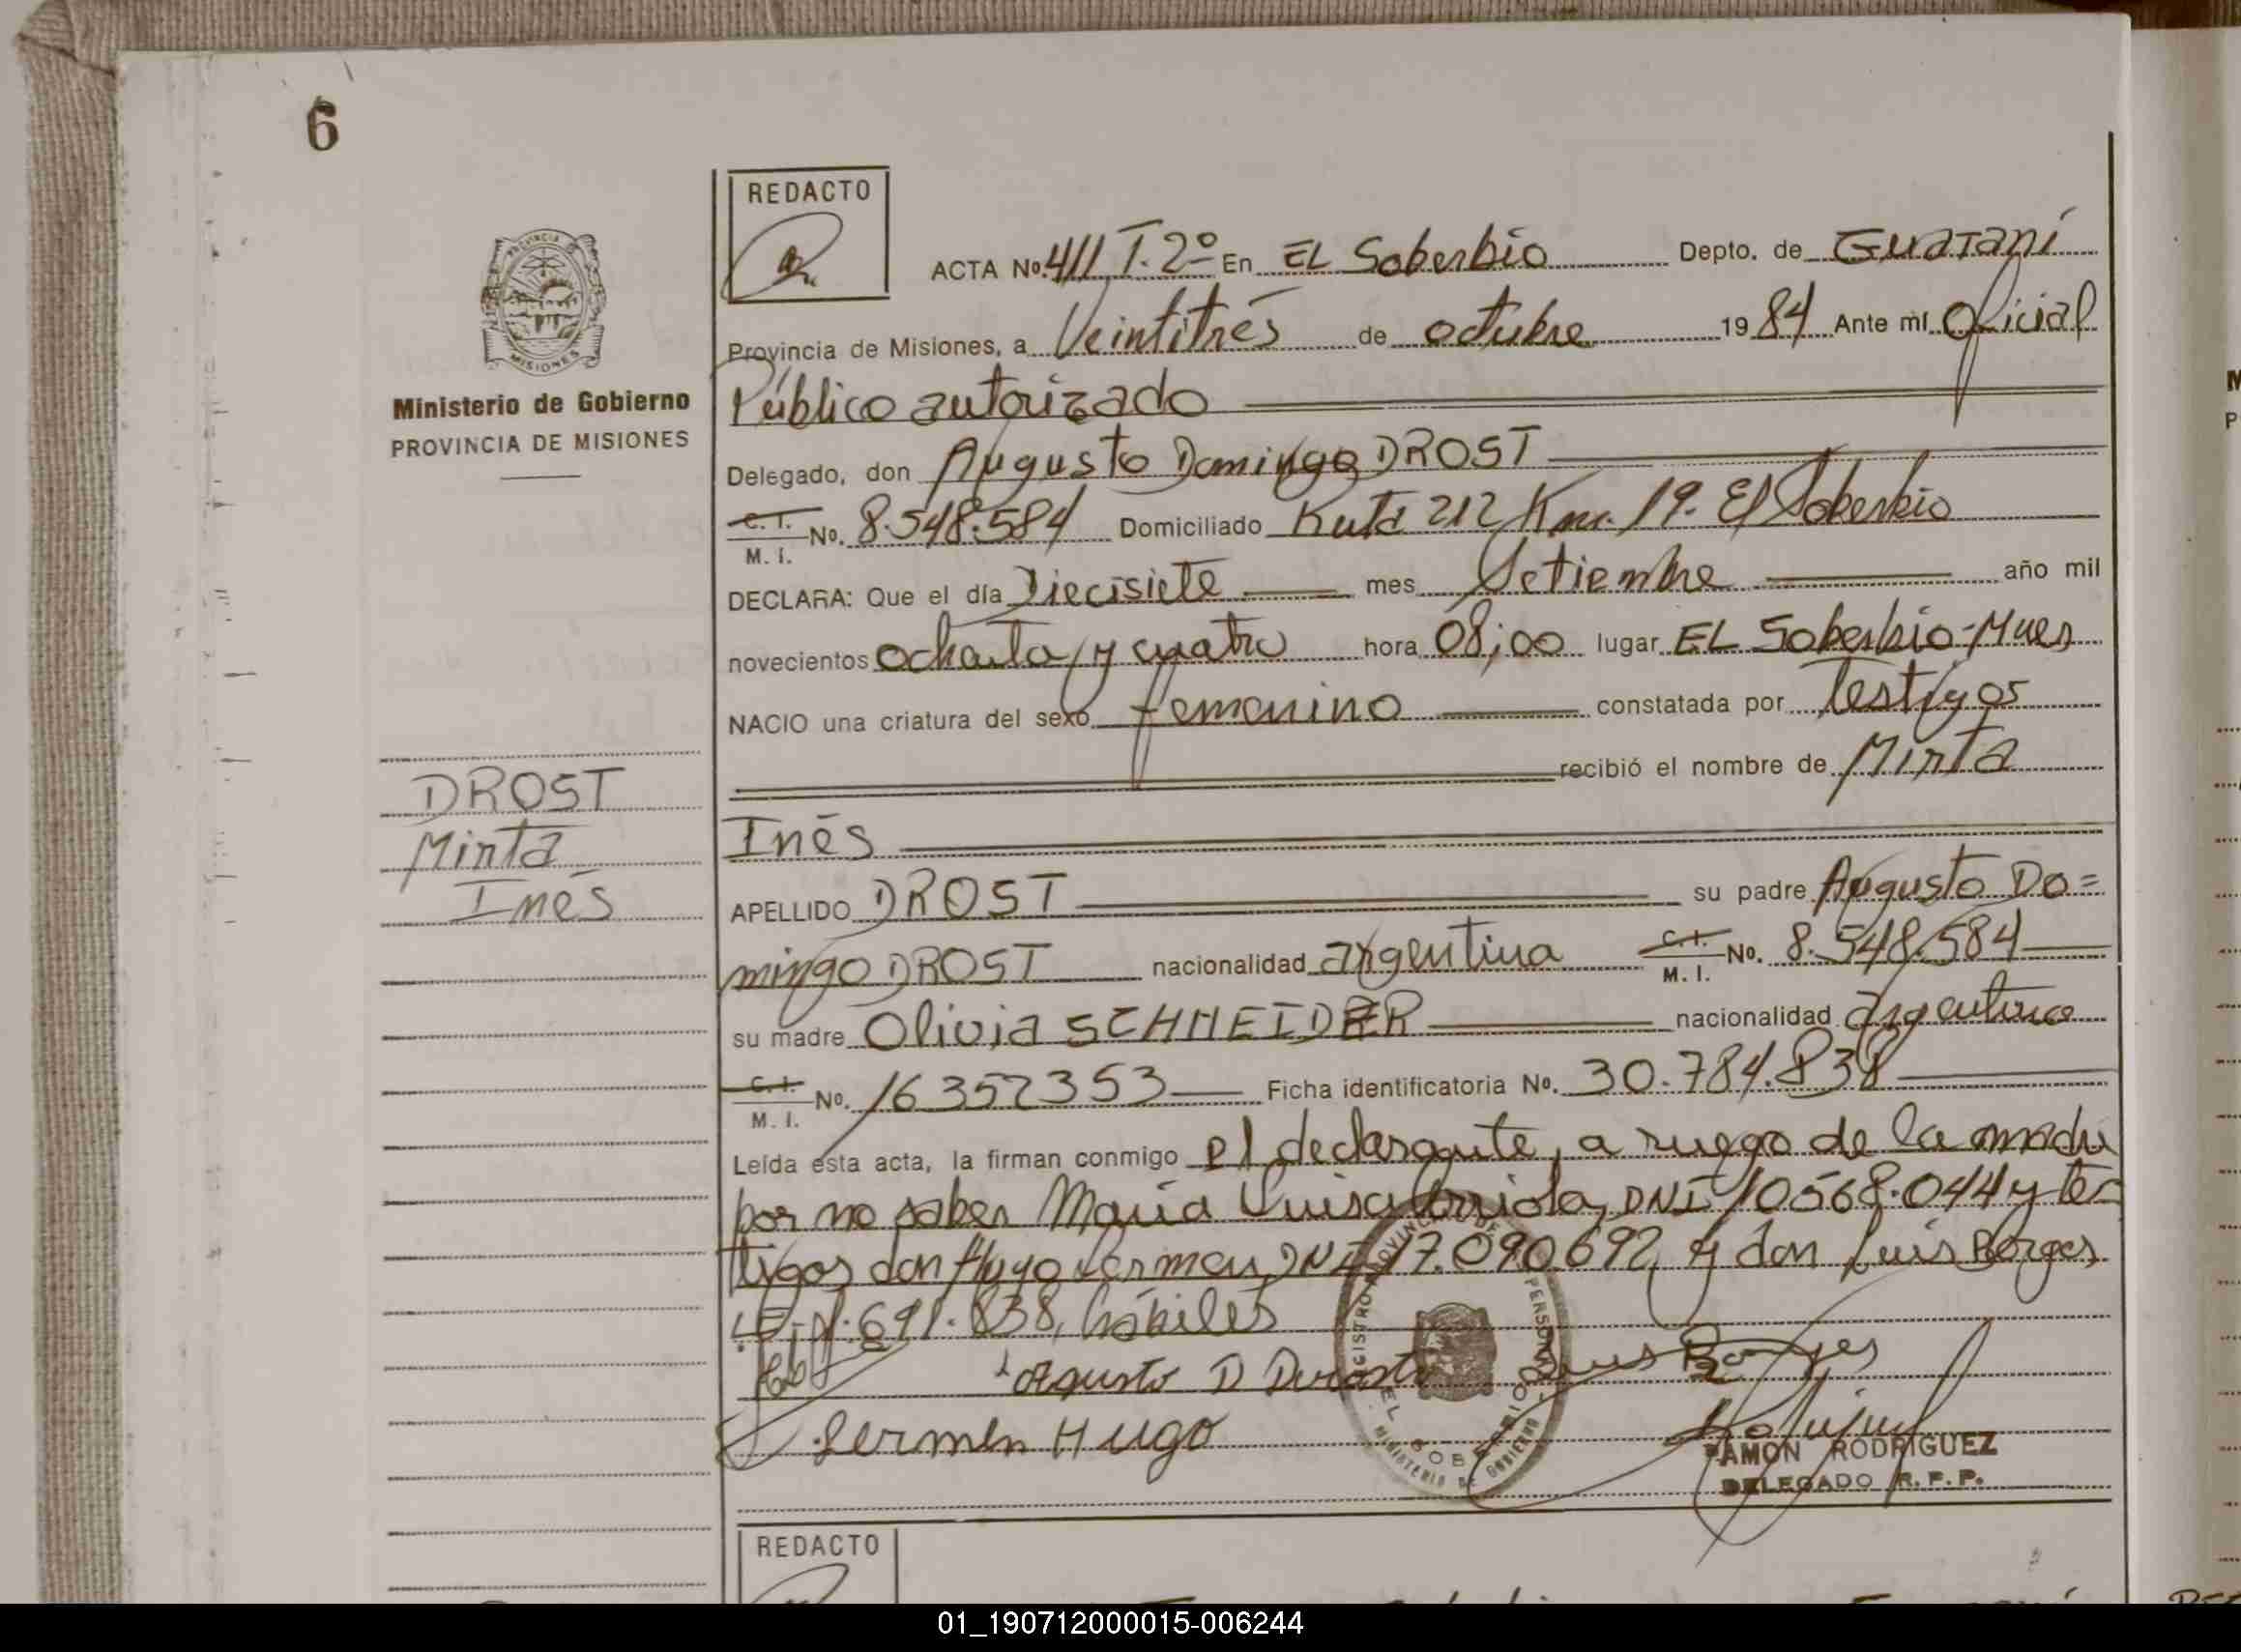 6
REDACTO
ACTA No. 411 T. 2º En EL Soberbio Depto. de Guaraní
Provincia de Misiones, a Veintitrés de octubre 1984 Ante mí Oficial
Público autorizado
Delegado, don Augusto Domingo DROST
C. I. No. 8.548.584 Domiciliado Ruta 212 Km. 19. El Soberbio
M. I.
DECLARA: Que el día Diecisiete mes Setiembre año mil
novecientos ochenta y cuatro hora 08;00 lugar EL Soberbio-Mnes
NACIO una criatura del sexo femenino constatada por Testigos
recibió el nombre de Mirta
Inés
APELLIDO DROST su padre Augusto Do=
mingo DROST nacionalidad argentina C. I. No. 8.548.584
M. I.
su madre Olivia SCHNEIDER nacionalidad argentina
C. I. No. 16352353 Ficha identificatoria No. 30.784.838
M. I.
Leída esta acta, la firman conmigo el declarante, a ruego de la madre
por no saber María Luisa DNI 10568.044 y tes
tigos don Hugo Lermen DNI 17.090.692 y don Luis Borges
.691.838, hábiles
Agusto D Durosto Luis Borges
Lermen Hugo
RAMON RODRIGUEZ
DELEGADO R. P. P.
PROVINCIA
MISIONES
Ministerio de Gobierno
PROVINCIA DE MISIONES
DROST
Mirta
Inés
REDACTO
01_190712000015-006244